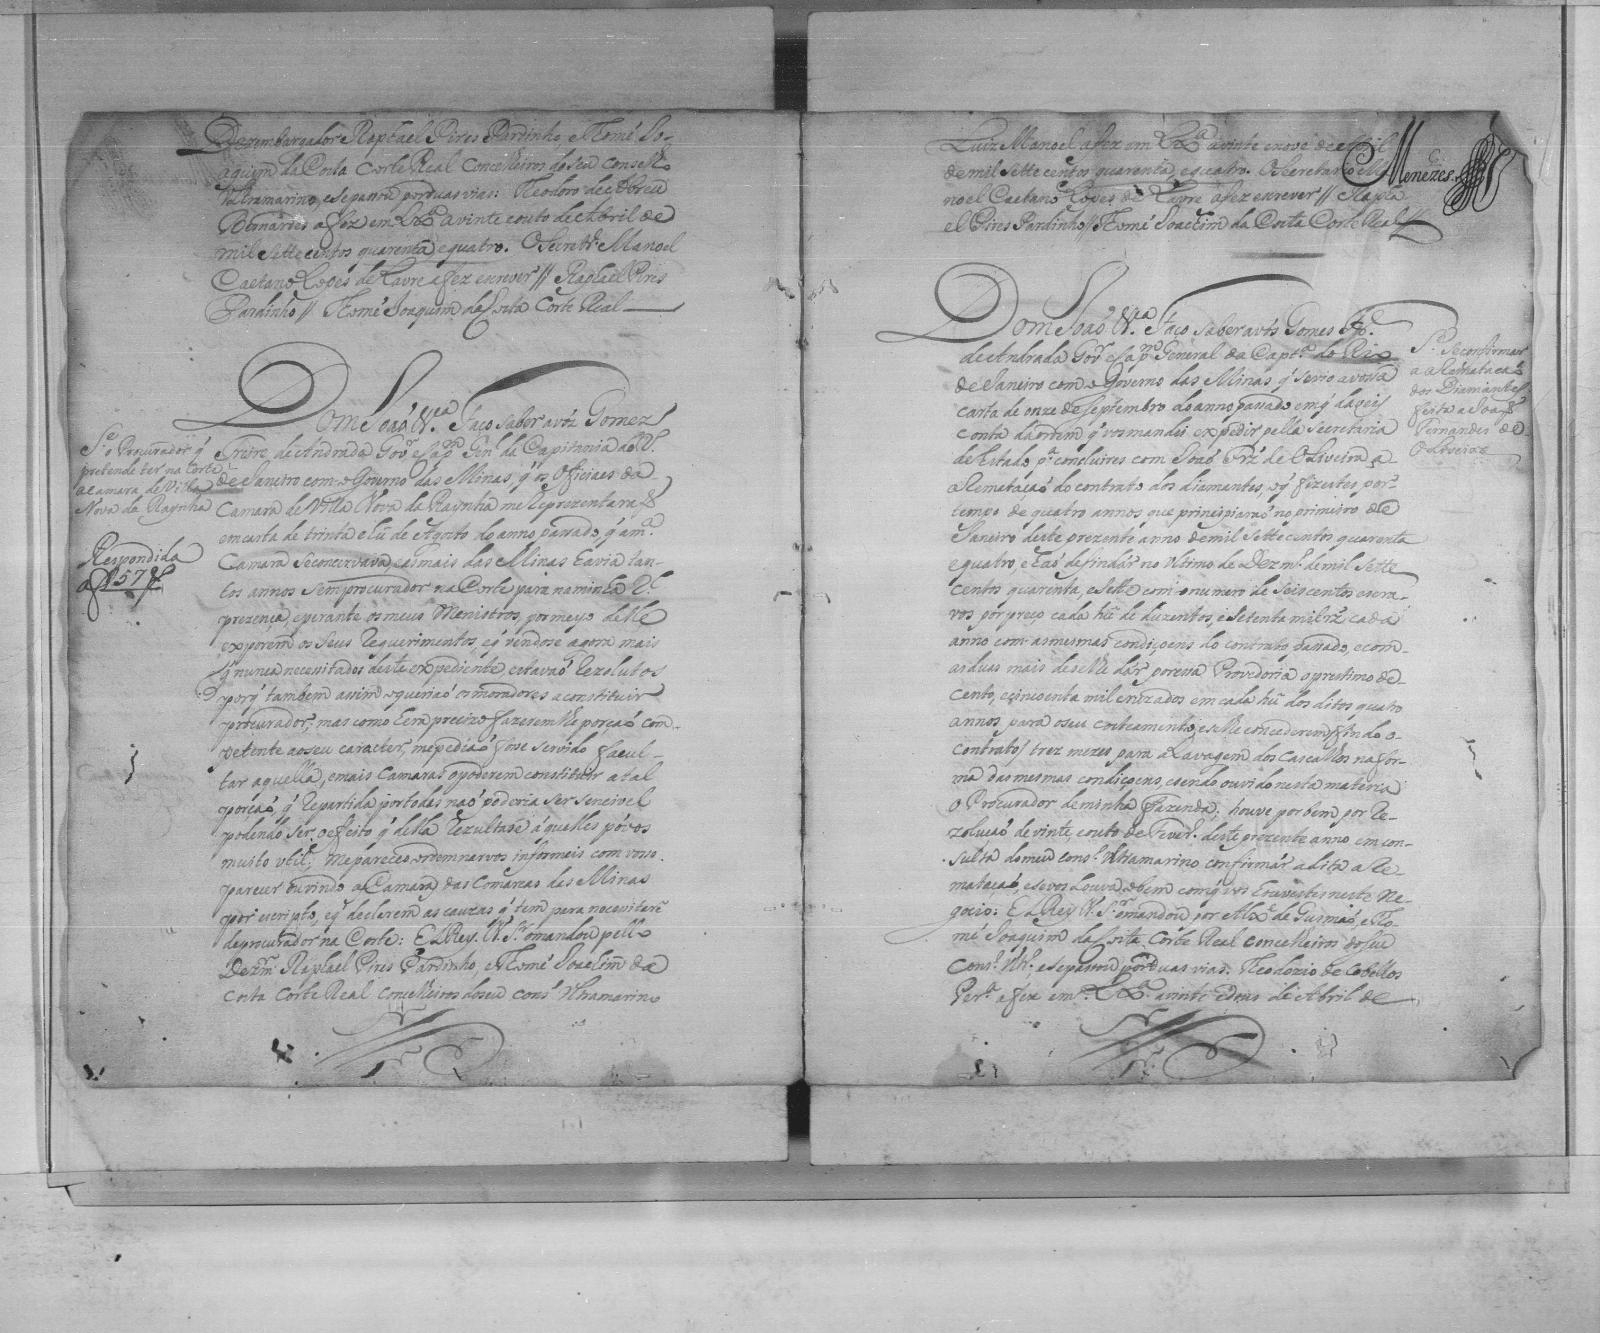 Dezembargador Raphael Pires Pardinho, e Thomé Jo-
aquim da Costa Corte Real Concelheiros do seu Conselho
Ultramarino, e se passou por duas vias: Theodoro de Abreu
Bernardes a fez em Lxª. a vinte e outo de Abril de
mil Sette centos quarenta e quatro. O Secretrº. Manoel
Caetano Lopes de Lavre a fez escrever // Raphael Pires
Pardinho // Thomé Joaquim da Costa Corte Real
Dom João &ca. Faço saber a vós Gomez
Freire de Andrada Govor. e Capam. Genl. da Capitania do R.
de Janeiro com o Governo das Minas, q̃ os Officiaes da
Camara de Villa Nova da Raynha me Reprezentarão
em carta de trinta e hũ de Agosto do anno passado, q̃ am.ª
Camara se concervava, e as mais das Minas havia tan-
tos annos sem procurador na Corte para na minha Rl.
prezença, e perante os meus Menistros, por meyo delle
exporem os seus Requerimentos, e q̃ vendose agora mais
q̃ nunca necessitados deste expediente, estavão Rezolutos
porq̃ tambem assim o querião os moradores a constituir
procurador; mas como hera precizo fazeremlhe porção com-
petente ao seu caracter, me pedião fose servido facul-
tar aquella, e mais Camaras o poderem constituir a tal
porção, q̃ Repartida por todas não poderia ser sencivel
podendo ser o efeito q̃ della Rezultase á quelles póvos
muito util; Me pareceo ordemnarvos informeis com vosso
parecer ouvindo a Camara das Comarcas das Minas
por escripto, e q̃ declerem as cauzas q̃ tem para necesitarẽ
de procurador na Corte: El Rey N. Sr. o mandou pello
Dezmor. Raphael Pires Pardinho, e Thomé Joachim da
Costa Corte Real Concelheiros do seu Consº. Ultramarino
Sº. o Procurador q̃
pretende ter na Corte
a Camara de Villa
Nova da Raynha
Respondida
a f 57
Luiz Manoel a fez em Lxª a vinte e nove de Abril
de mil Sette centos quarenta, e quatro. O Secretario Ma-
noel Caetano Lopes de Lavre a fez escrever // Rapha-
el Pires Pardinho // Thomé Joachim da Costa Corte Real
Menezes
Dom João &ca. Faço saber a vós Gomes Frº.
de Andrada Govor. e Capam. General da Captª. do Rio
de Janeiro com o Governo das Minas q̃ se vio a vossa
carta de onze de Septembro do anno passado em q̃ daveis
conta da ordem q̃ vos mandei expedir pella Secretaria
de Estado, pª. concluires com João Frz̃ de Oliveira a
a Rematação do contrato dos diamantes, e q̃ fizestes por
tempo de quatro annos que principiarão no primeiro de
Janeiro deste prezente anno de mil Sette centos quarenta
e quatro, e hão de findár no ultimo de Dezmº. de mil Sette
centos quarenta, e sette com o numero de Seis centos escra-
vos por preço cada hũ de duzentos, e setenta mil rz̃ cada
anno com as mesmas condiçoens do contrato passado, e com
as duas mais de se lhe dár por essa Provedoria o prestimo de
cento, e sincoenta mil cruzados em cada hũ dos ditos quatro
annos, para o seu costeamento, e se lhe concederem findo o
contrato trez mezes para a Lavagem dos cascalhos na for-
ma das mesmas condiçoens, e sendo ouvido nesta materia
o Procurador de minha fazenda; houve por bem por Re-
zolução de vinte, e outo de Feverº. deste prezente anno em con-
sulta do meu consº. Ultramarino confirmár a dita a Re-
matação, e se vos Louva, o bem com q̃ vos houvestes neste Ne-
gocio: El Rey N. Sr. o mandou por Alxe. de Gusmão, e Tho-
mé Joaquim da Costa Corte Real concelheiros do seu
Consº. Ultrº., e se passou por duas vias. Theodozio de Cobellos
Perª. a fez em Lxª. a vinte e dous de Abril de
Sº. se confirmar
a a Rematação
dos Diamantes
feita a João
Fernandes de
Oliveira